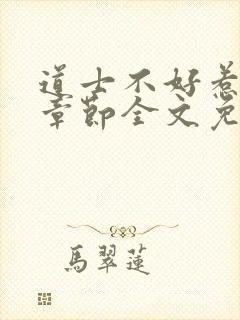 道士不好惹
章節全文免
馬翠蓮